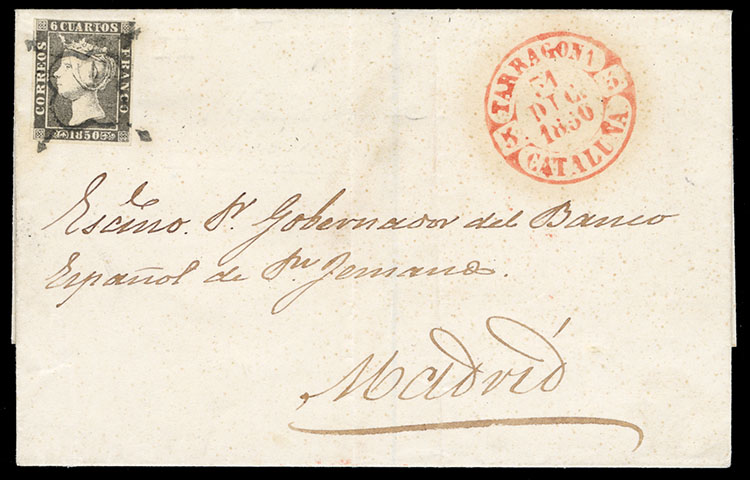 6 CUARTOS
CORREOS
FRANCO
1850
TARRAGONA
31
DIC.
1850
5 5
CATALUÑA
Escmo. Sr. Gobernador del Banco
Español de Sn. Fernando.
Madrid